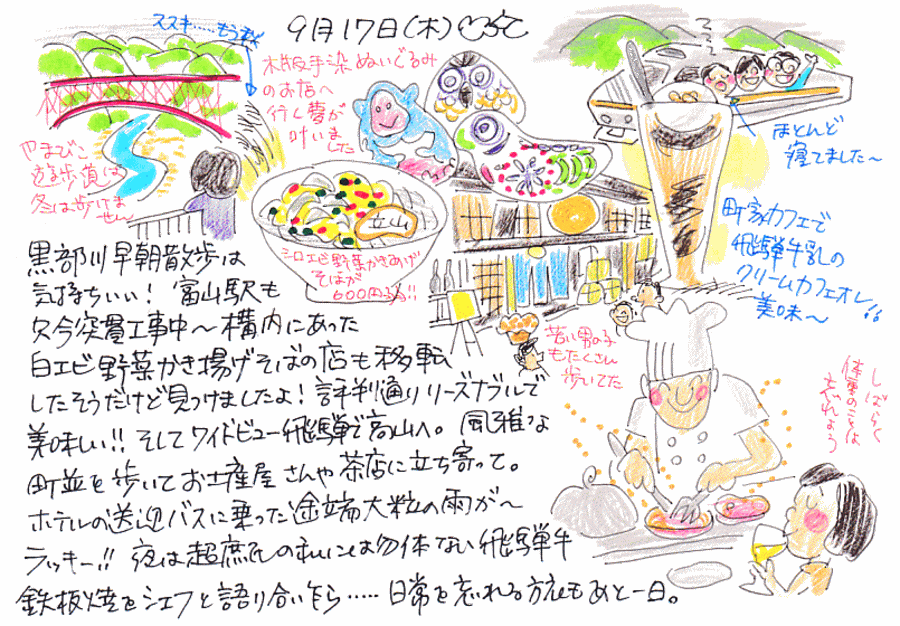 9月17日(木)
ススキ……もう秋
木版手染ぬいぐるみ
のお店へ
行く夢が
叶いました
やまびこ
遊歩道は
冬は歩けま
せん〜
ほとんど
寝てました〜
立山
シロエビ野菜かきあげ
そばが
町家カフェで
飛騨牛乳の
クリームカフェオレ!!
美味〜
若い男の子
もたくさん
歩いてた
しばらく
体重のことは
忘れよう
黒部川早朝散歩は
気持ちいい! 富山駅も
只今突貫工事中〜構内にあった
白エビ野菜かき揚げそばの店も移転
したそうだけど見つけましたよ! 評判通りリーズナブルで
美味しい!! そしてワイドビュー飛騨で高山へ。風雅な
町並を歩いてお土産屋さんや茶店に立ち寄って。
ホテルの送迎バスに乗った途端大粒の雨が〜
ラッキー!! 夜は超庶民の私には勿体ない飛騨牛
鉄板焼をシェフと語り合いながら…..日常を忘れる旅もあと一日。